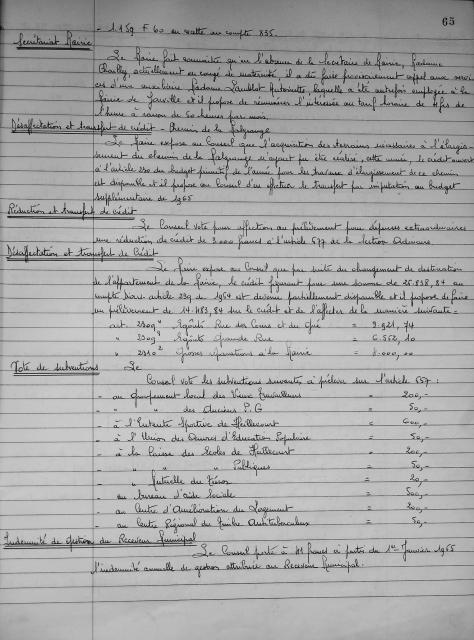 65
- 1.159 F 60 au au compte 835.
Secrétariat Mairie
Le Maire fait connaître qu'en l'absence de la Secrétaire de Mairie, Madame
actuellement en congé de maternité, il a dû faire provisoirement appel aux servi
ces d'une auxiliaire Madame laquelle a été autrefois employée à la
Mairie de et il propose de rémunérer l'intéressée au tarif horaire de
l'heure à raison de 50 heures par mois.
Désaffectation et transfert de crédit - Chemin de la
Le Maire expose au Conseil que l'acquisition des terrains nécessaires à l'élargis-
sement du chemin de la n'ayant pu être réalisée cette année, le crédit ouvert
à l'article 250 du budget primitif de l'année pour les travaux d'élargissement de ce chemin
est disponible et il propose au Conseil d'en effectuer le transfert par imputation au budget
supplémentaire de 1965
Réduction et transfert de crédit
Le Conseil vote pour affection au prélèvement pour dépenses extraordinaires
une réduction de crédit de 3.000 francs à l'article 677 de la Section Ordinaire
Désaffectation et transfert de Crédit
Le Maire expose au Conseil que par suite du changement de destination
de l'appartement de la Mairie, le crédit figurant pour une somme de 25.838,84 au
compte hors article 239 de 1964 est devenu partiellement disponible et il propose de faire
un prélèvement de 14.483,84 sur le crédit et de l'affecter de la manière suivante =
art. 2309" Egoûts Rue des Cours et du Gué = 9.921,74
" 2309" Egoûts Grande Rue = 6.562,10
" 2310² Grosses réparations à la Mairie = 3.000,00
Vote de subventions Le
Conseil vote les subventions suivantes à prélever sur l'article 657 :
- au groupement local des Vieux Travailleurs = 200,-
- " " des Anciens P.G = 50,-
- à l'Entente Sportive de Heillecourt = 600,-
- à l'Union des Oeuvres d'Education Populaire = 50,-
- à la Caisse des Ecoles de Heillecourt = 200,-
- " " " Publiques = 50,-
- " Mutuelle du Trésor = 20,-
- au bureau d'aide Sociale = 500,-
- au Centre d'Amélioration du Logement = 200,-
- au Centre Régional du Timbre Antituberculeux = 50,-
Indemnité de Gestion du Receveur Municipal
Le Conseil porte à francs à partir du 1er Janvier 1965
l'indemnité annuelle de gestion attribuée au Receveur Municipal.